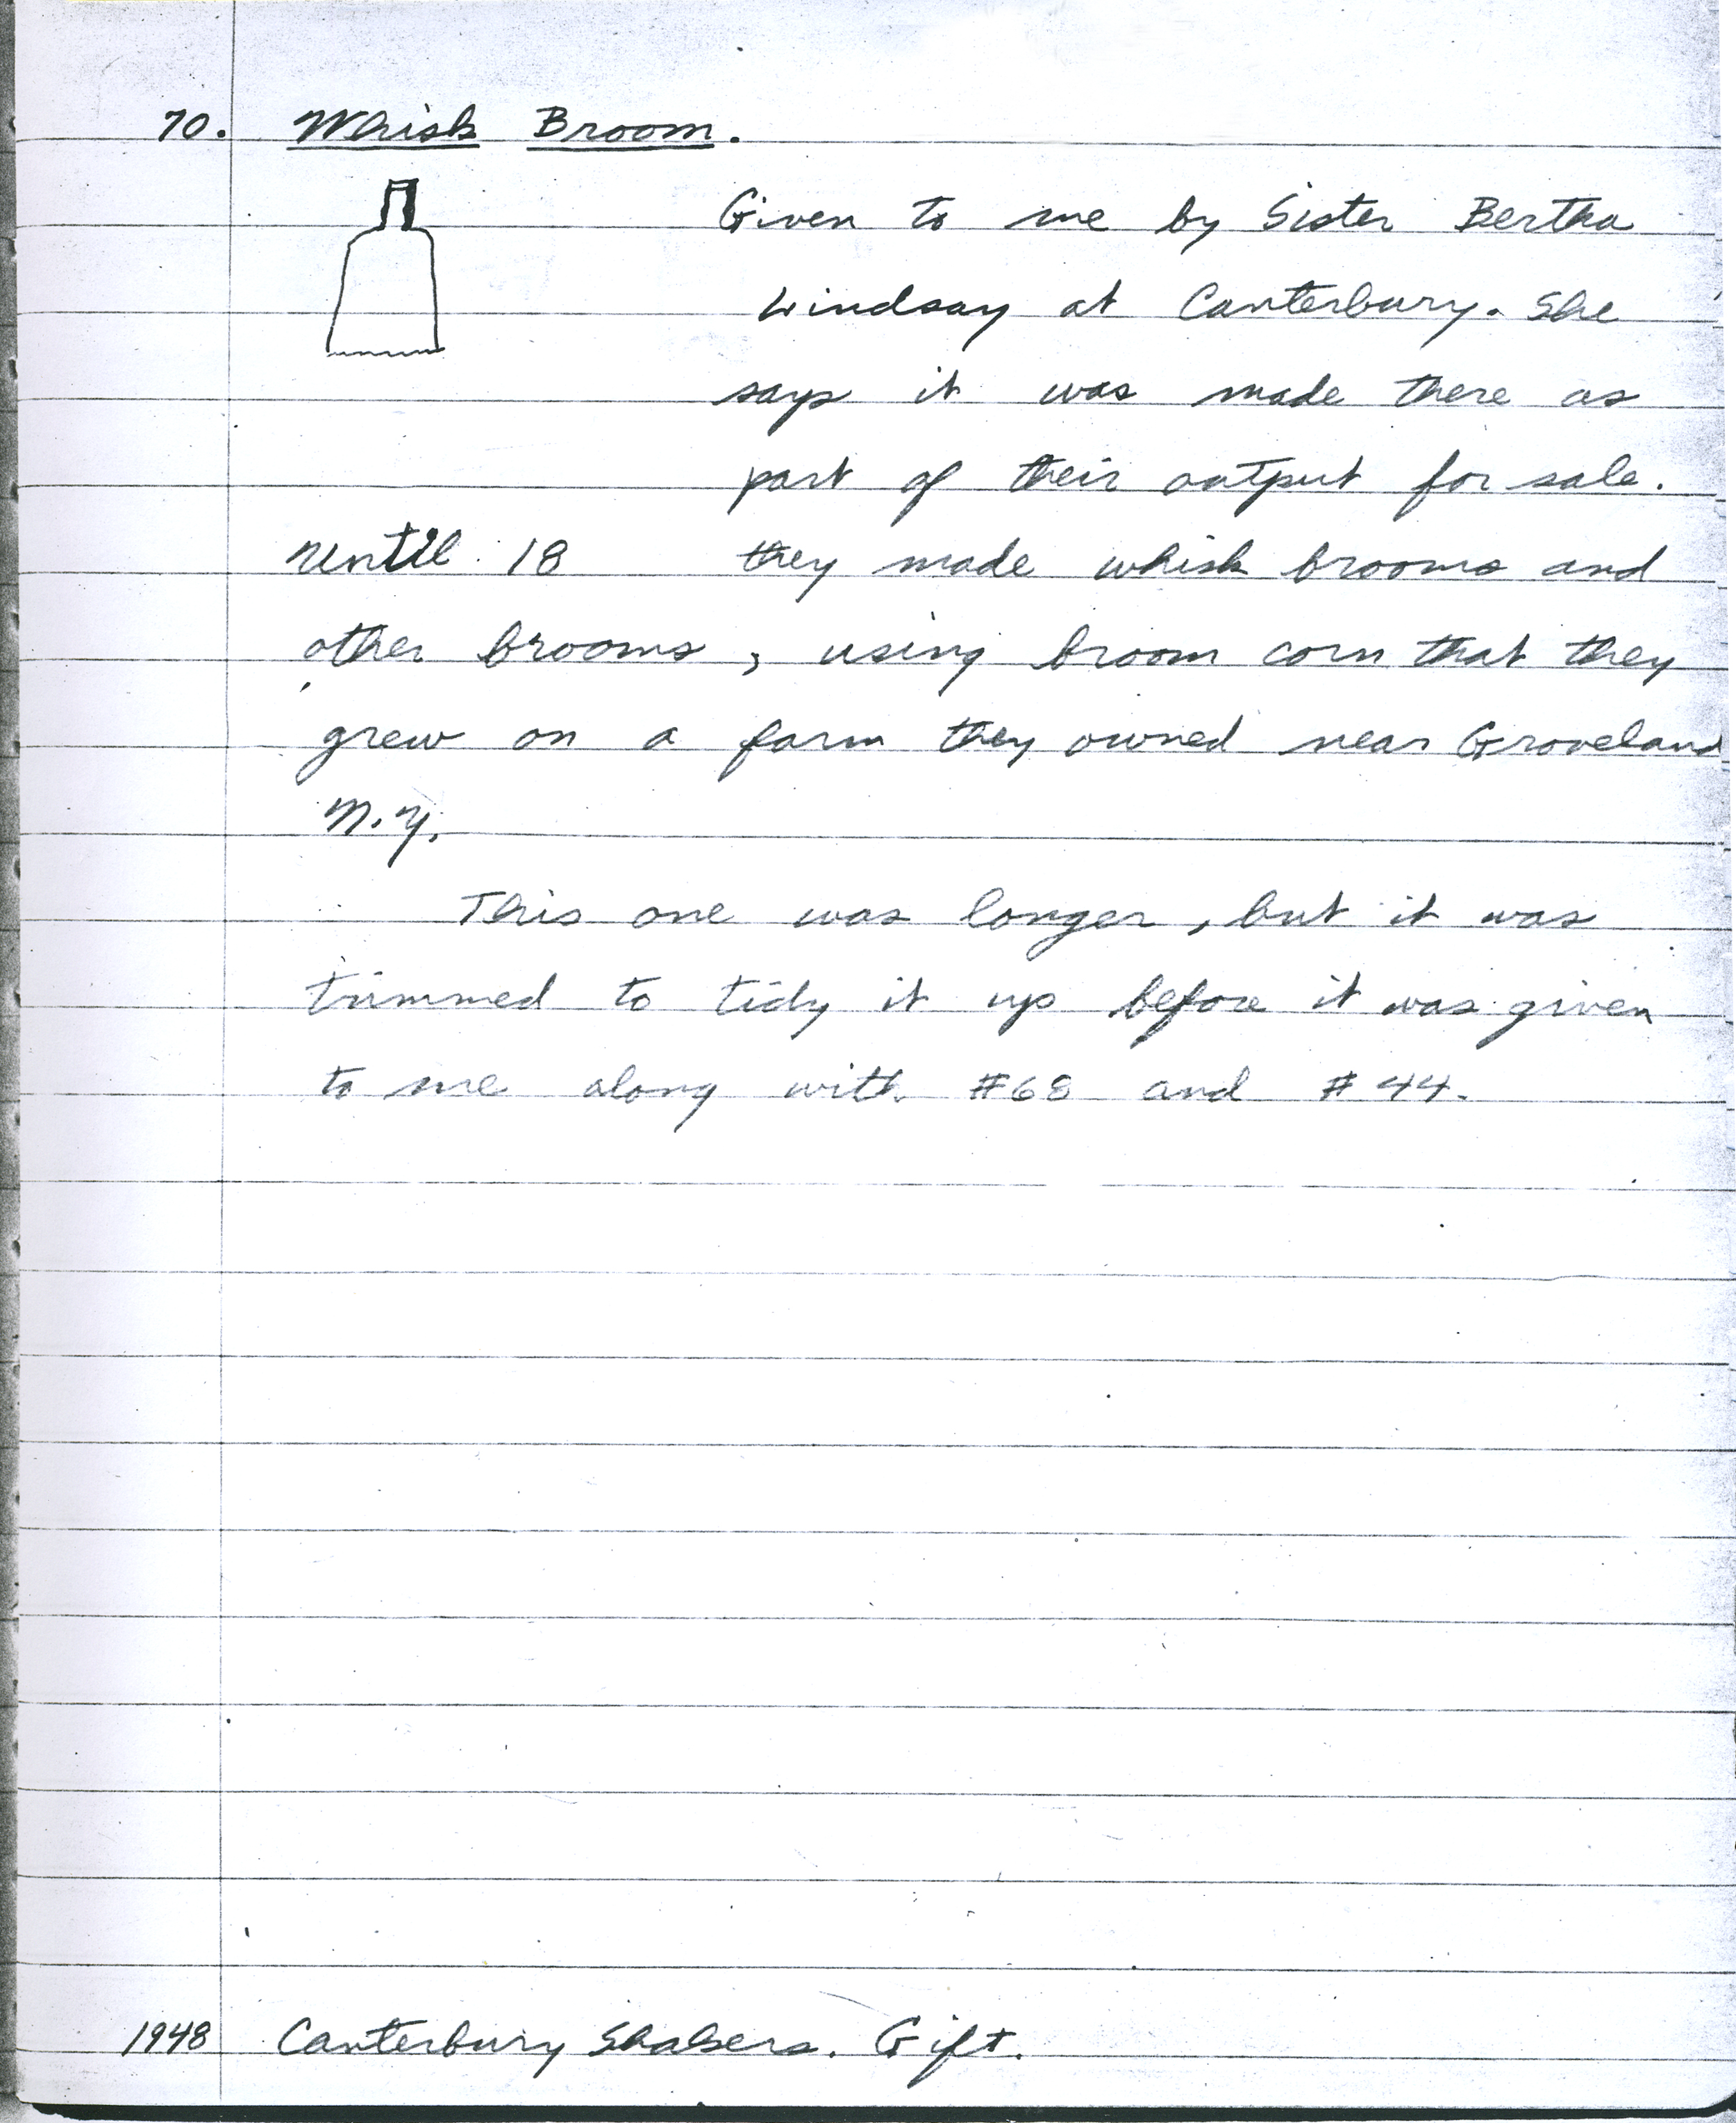 70. Whisk Broom.
Given to me by Sister Bertha
Lindsay at Canterbury. She
says it was made there as
part of their output for sale.
Until 18 they made whisk brooms and
other brooms, using broom corn that they
grew on a farm they owned near Groveland
N.Y.
This one was longer, but it was
trimmed to tidy it up before it was given
to me along with #68 and #44.
1948 Canterbury Shakers. Gift.